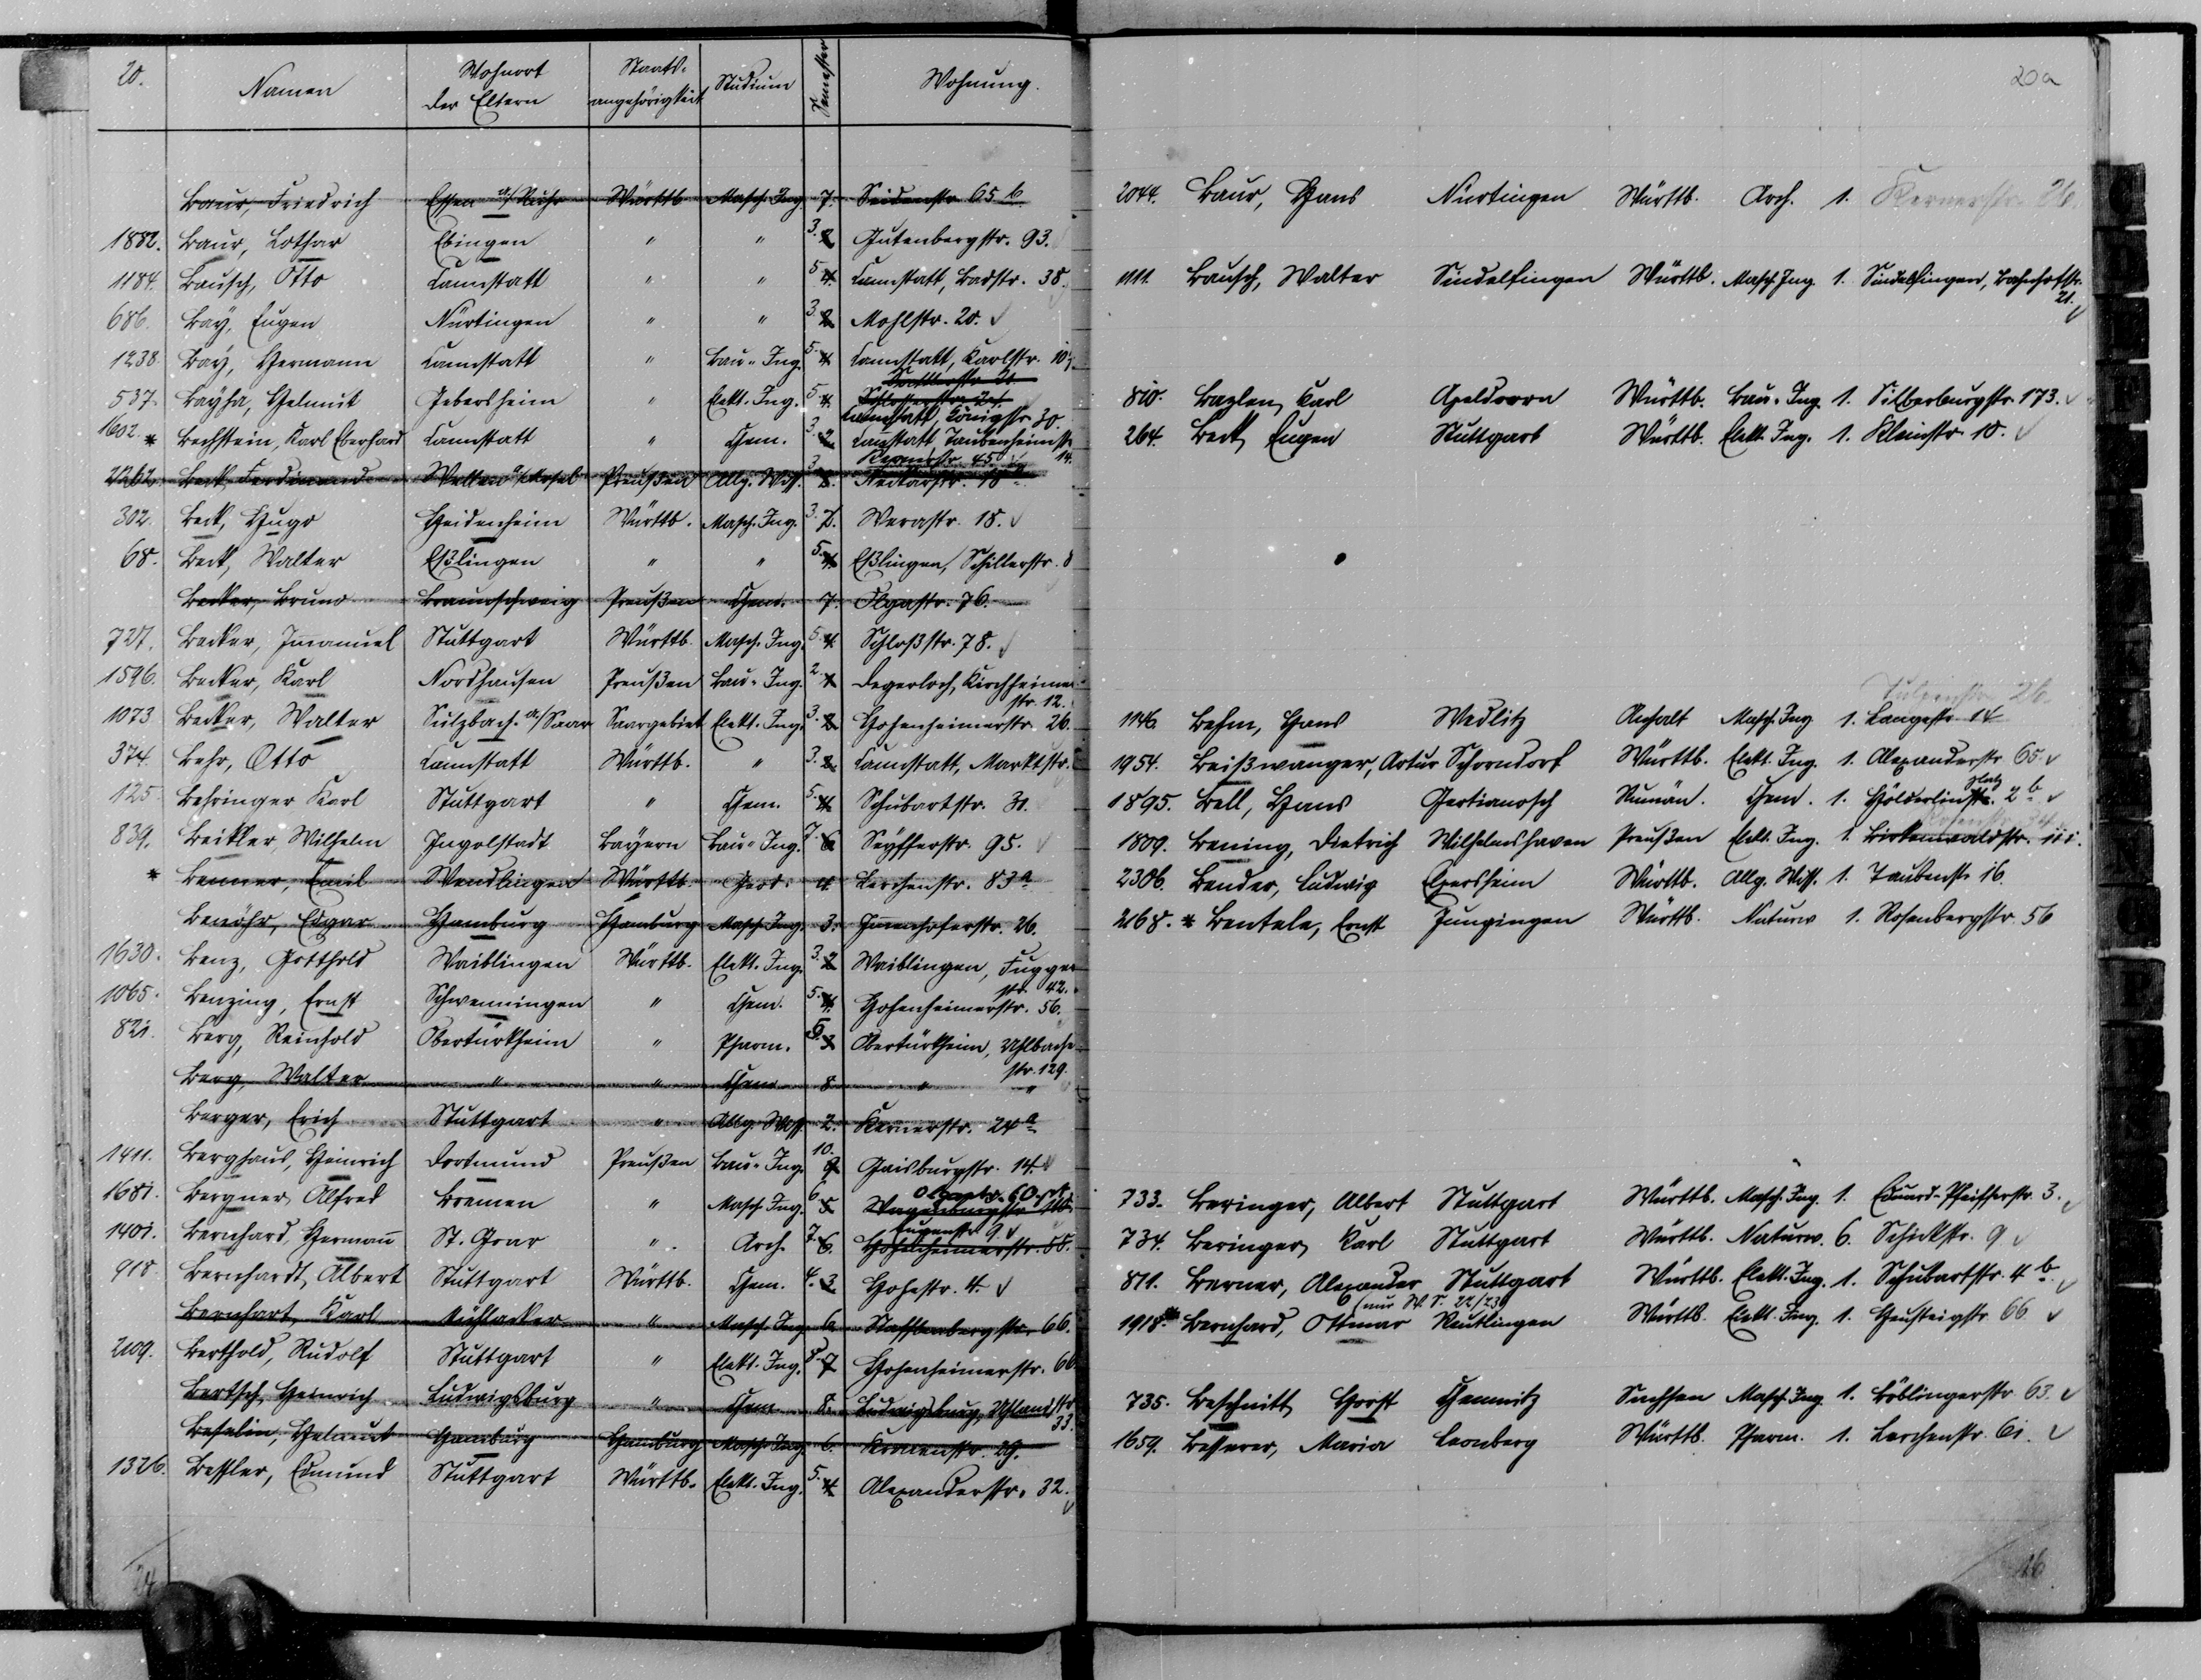 20.
Namen
Wohnort der Eltern
Staats-angehörigkeit
Studium
Semester
Wohnung.
Baur, Friedrich Essen a/Ruhr Württb. Masch. Ing. 7. Seidenstr. 65 b.
1882. Baur, Lothar Ebingen " " 3. 2. Gutenbergstr. 93.
1184. Bausch, Otto Cannstatt " " 5. 4. Cannstatt, Badstr. 38.
686. Bay, Eugen Nürtingen " " 3. 2. Mohlstr. 20. √
1238. Bay, Hermann Cannstatt " Bau-Ing. 5. 4. Cannstatt, Karlstr.
537. Bayha, Helmut Gebersheim " Elekt. Ing. 5. 4. Cannstatt, Königstr. 30.
1602. * Bechstein, Karl Eberhard Cannstatt " Chem. 3. 2. Cannstatt Taubenheimstr. 14.
2262. Beck, Ferdinand a/Mosel Preußen Allg. Wiss. 3. Kernerstr. 45 Neckarstr.
302. Beck, Hugo Heidenheim Württb. Masch. Ing. 3. 2. Werastr. 18. √
68. Beck, Walter Eßlingen " " 5. 4. Eßlingen, Schillerstr. 8
Becker, Bruno Braunschweig Preußen Chem. 7. Olgastr. 76.
727. Becker, Imanuel Stuttgart Württb. Masch. Ing. 5. 4. Schloßstr. 78. √
1596. Becker, Karl Nordhausen Preußen Bau-Ing. 2. 1. Degerloch, Kirchheimer-
str. 12.
1073. Becker, Walter Sulzbach a/Saar Saargebiet Elekt. Ing. 3. 2. Hohenheimerstr. 26.
374. Behr, Otto Cannstatt Württb. " 3. 2. Cannstatt, Marktstr.
125. Behringer Karl Stuttgart " Chem. 5. 4. Schubartstr.
839. Beikler, Wilhelm Ingolstadt Bayern Bau-Ing. 7. 6. Seyfferstr. 95. √
* Benner, Emil Wendlingen Württb. Geod. 4. Lerchenstr. 83 a
Benöhr, Edgar Hamburg Hamburg Masch. Ing. 3. Immenhoferstr. 26.
1630. Benz, Gotthold Waiblingen Württb. Elekt. Ing. 3. 2. Waiblingen, Fugger-
str. 42.
1065. Benzing, Ernst Schwenningen " Chem. 5. 4. Hohenheimerstr. 56.
821. Berg, Reinhold Obertürkheim " Pharm. Obertürkheim, Uhlbacher-
str. 129.
Berg, Walter " " Chem. 8. " "
Berger, Erich Stuttgart " Allg. Wiss. 2. Kernerstr. 24 a
1411. Berghaus, Heinrich Dortmund Preußen Bau-Ing. 10. 9. Gaisburgstr. 14. √
1681. Bergner, Alfred Bremen " Masch. Ing. 6. 5. Olgastr. 60
1401. Bernhard, Hermann St. Goar " Arch. 7. 6. Eugenstr. 9. √ Hohenheimerstr.
918. Bernhardt, Albert Stuttgart Württb. Chem. 4. 3. Hohestr. 4. √
Bernhart, Karl Mühlacker " Masch. Ing. 6. Stafflenbergstr. 66.
2109. Berthold, Rudolf Stuttgart " Elekt. Ing. 8. 7. Hohenheimerstr. 60
Bertsch, Heinrich Ludwigsburg " Chem. 8. Ludwigsburg, Uhlandstr.
33.
Beselin, Helmut Hamburg Hamburg Masch. Ing. 6. Kronenstr. 29.
1326. Bessler, Edmund Stuttgart Württb. Elekt. Ing. 5. 4. Alexanderstr. 32. √
24
20a
2044. Baur, Hans Nürtingen Württb. Arch. 1. Kernerstr. 26.
1111. Bausch, Walter Sindelfingen Württb. Masch. Ing. 1. Sindelfingen, Bahnhofstr.
21. √
810. Bazlen, Karl Apeldoorn Württb. Bau-Ing. 1. Silberburgstr. 173. √
264. Beck, Eugen Stuttgart Württb. Elekt. Ing. 1. Kleinstr. 10. √
Tulpenstr. 26.
1146. Behm, Hans Wedlitz Anhalt Masch. Ing. 1. Langestr. 14
1954. Beißwanger, Artur Schorndorf Württb. Elekt. Ing. 1. Alexanderstr. 65. √
1895. Bell, Hans Gertianosch Rumän. Chem. 1. Hölderlinplatz 2 b √
1809. Bening, Dietrich Wilhelmshaven Preußen Elekt. Ing. 1. Birkenwaldstr. 111.
2306. Bender, Ludwig Ebersheim Württb. Allg. Wiss. 1. Taubenstr. 16.
2168. * Bentele, Ernst Jungingen Württb. Naturw. 1. Rosenbergstr. 56
733. Beringer, Albert Stuttgart Württb. Masch. Ing. 1. Eduard-Pfeifferstr. 3. √
734. Beringer, Karl Stuttgart Württb. Naturw. 6. Schickstr. 9 √
811. Berner, Alexander Stuttgart Württb. Elekt. Ing. 1. Schubartstr. 4 b. √
(nur W. S. 22/23)
1918. * Bernhard, Ottmar Reutlingen Württb. Elekt. Ing. 1. Heusteigstr. 66 √
735. Beschnitt, Horst Chemnitz Sachsen Masch. Ing. 1. Böblingerstr. 63. √
1659. Besserer, Maria Leonberg Württb. Pharm. 1. Lerchenstr. 61. √
16